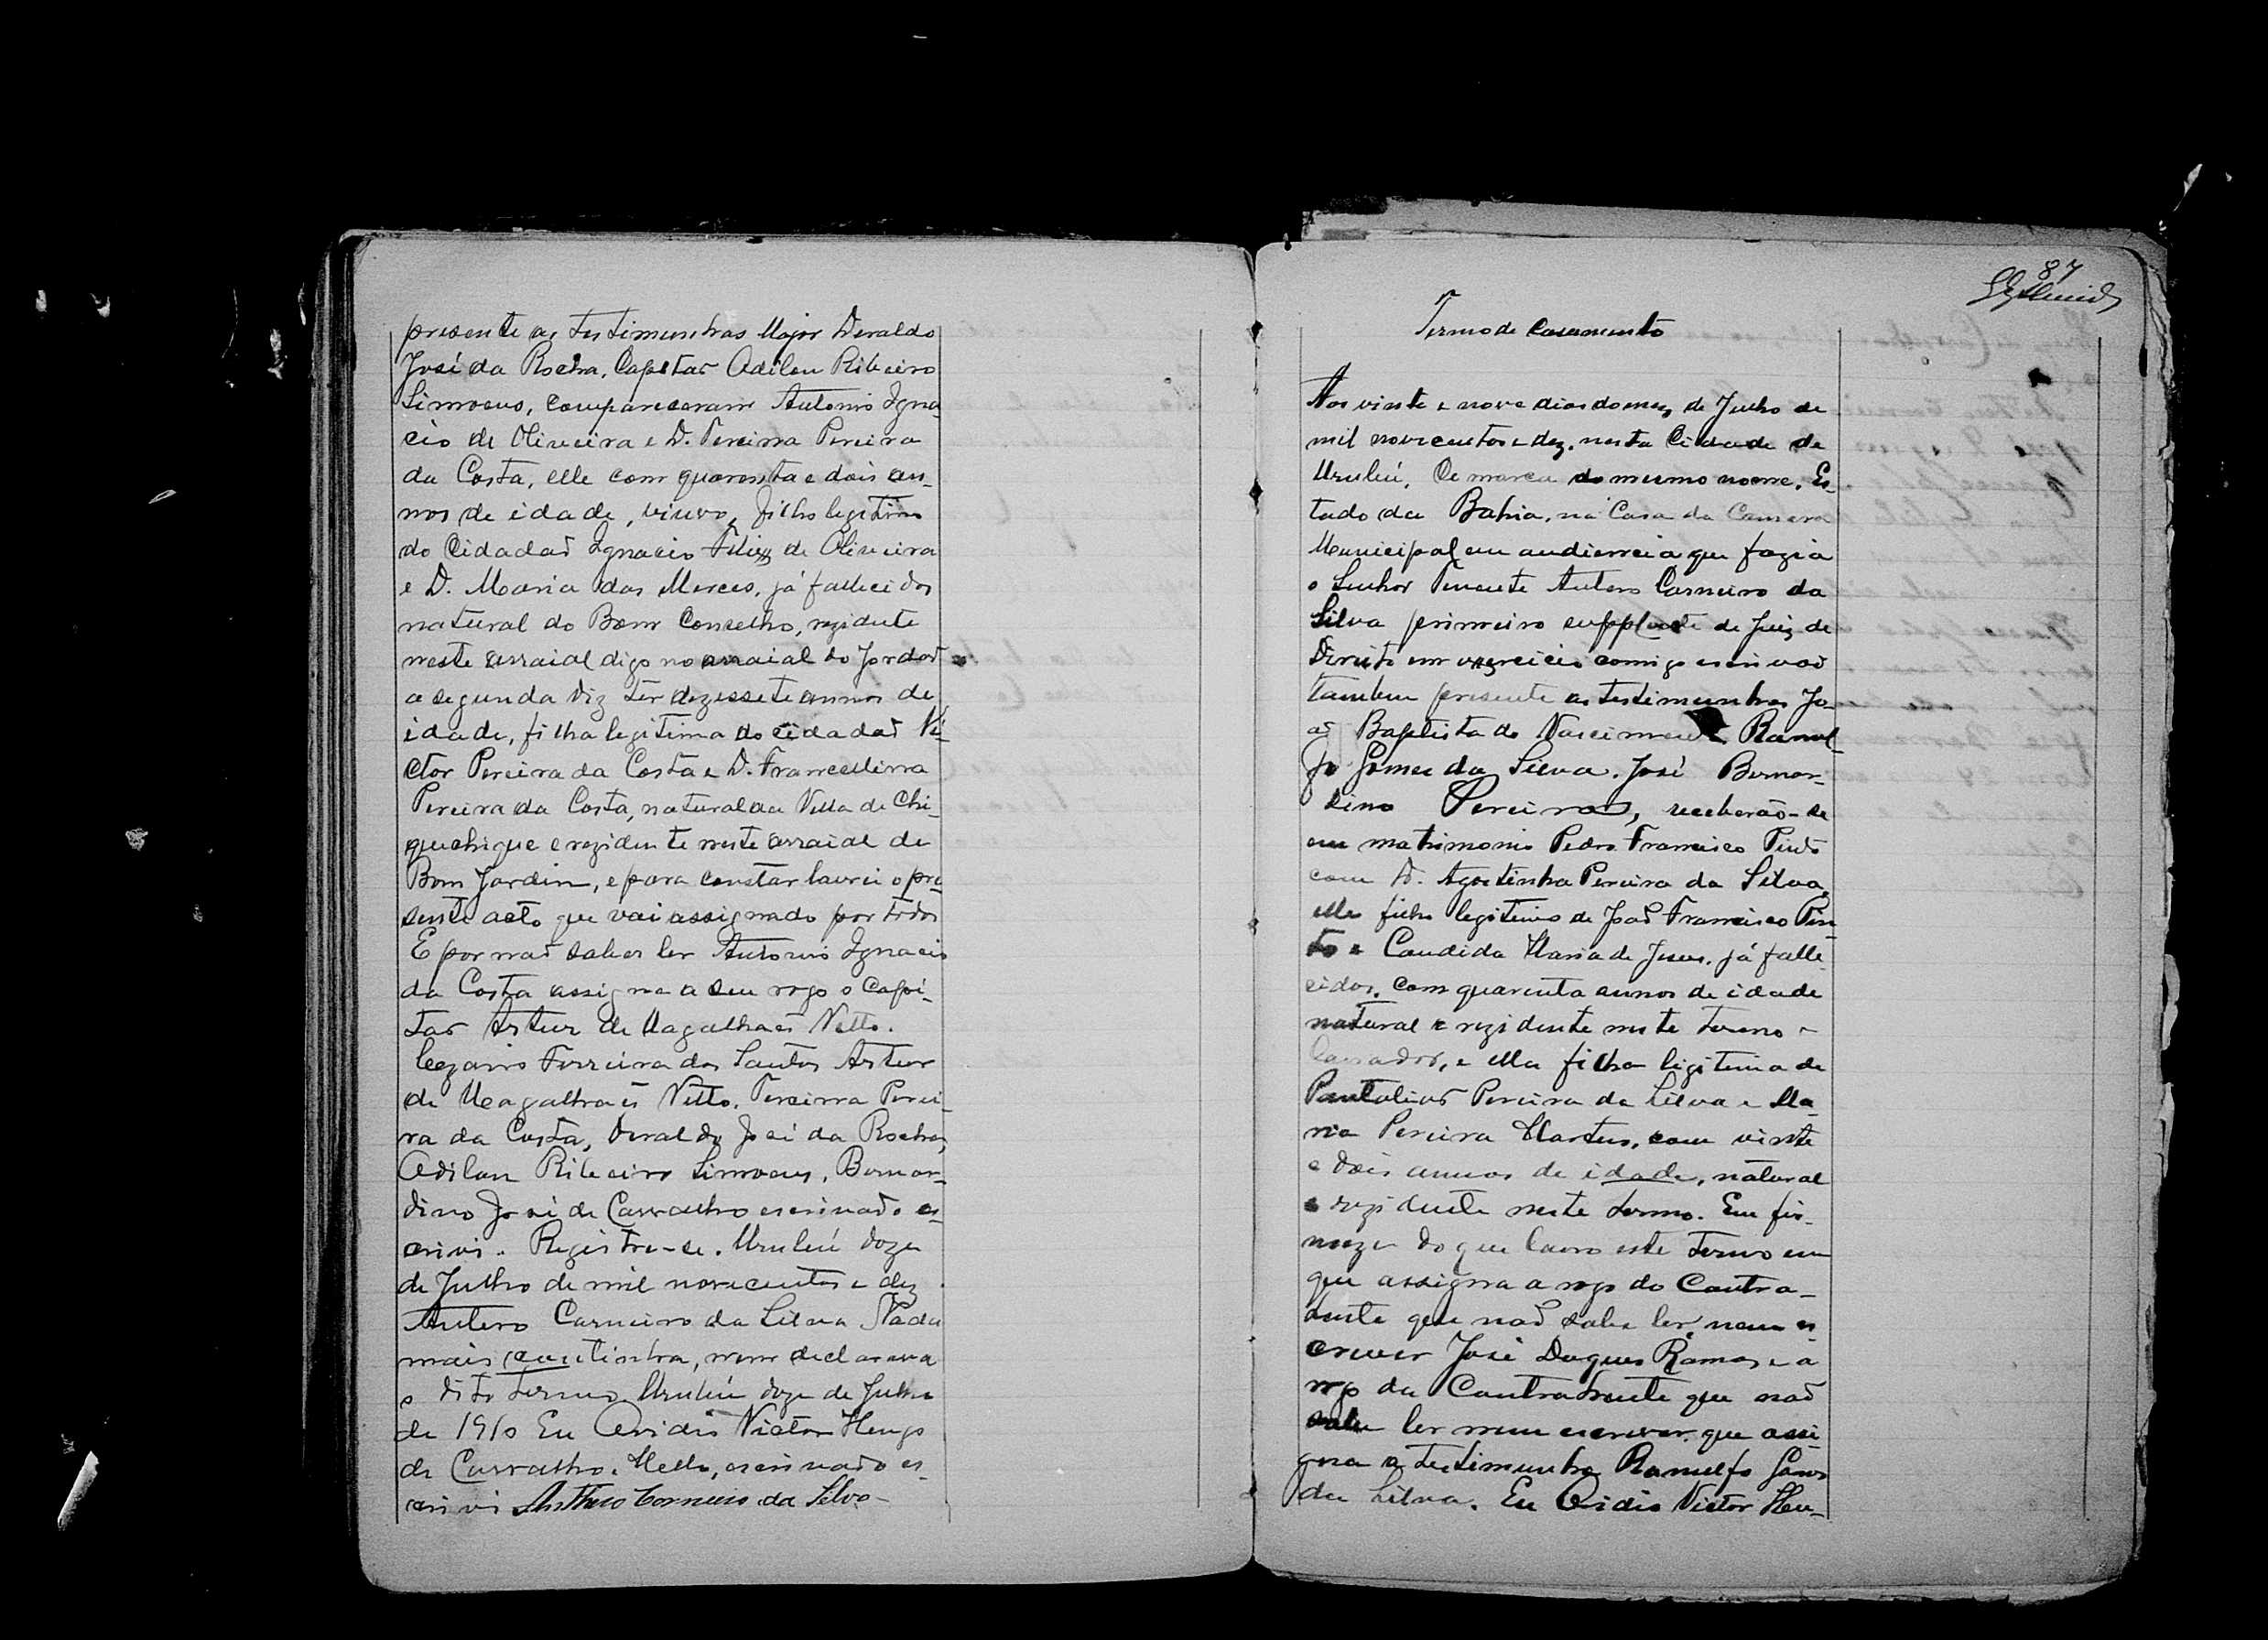 presente as testimunhas Major Deraldo
José da Rocha, Capitaõ Adilon Ribeiro
Simoens, compareceram Antonio Igna
cio de Oliveira e D. Pereira
da Costa, elle com quarenta e dois an-
nos de idade, viuvo, filho legitimo
do Cidadaõ Ignacio de Oliveira
e D. Maria das Merces, já fallecidos
natural do Bom Conselho, rezidente
neste arraial digo no arraial do Jordaõ
a segunda diz ter dezessete annos de
idade, filha legitima do cidadaõ Vi-
ctor Pereira da Costa e D. Francellina
Pereira da Costa, natural da Villa de Chi-
quechique e rezidente neste arraial de
Bom Jardim, e para constar lavrei o pre
sente acto que vai assignado por todos
E por naõ saber ler Antonio Ignacio
da Costa assigna a seu rogo o Capi-
taõ Artur de Magalhaẽs Netto.
Cezario Ferreira dos Santos Artur
de Magalhaẽs Netto. Perei-
ra da Costa, Deraldo José da Rocha,
Adilon Ribeiro Simoens, Bernar-
dino José de Carvalho escrivaõ o es-
crivi. Registre-se. Urubú doze
de Julho de mil novecentos e dez
Antero Carneiro da Silva Nada
mais continha, nem declarava
o dito termo Urubú doze de Julho
de 1910 Eu Ovidio Victor Hugo
de Carvalho e Mello, escrivaõ o es-
crivi Anthero Carneiro da Silva
87
Termo de Casamento
Aos vinte e nove dias do mez de Julho de
mil novecentos e dez, nesta Cidade de
Urubú, Comarca do mesmo nome, Es-
tado da Bahia, na Casa da Camara
Municipal em audiencia que fazia
o Senhor Tenente Antero Carneiro da
Silva primeiro supplente de Juiz de
Direito em exercicio comigo escrivaõ
tambem presente as testimunhas Jo-
aõ Baptista do Nascimento Ranul-
fo Gomes da Silva. José Bernar-
dino Pereira, receberaõ-se
em matrimonio Pedro Francisco Pinto
com D. Agostinha Pereira da Silva,
elle filho legitimo de Joaõ Francisco Pin
to e Candida Maria de Jesus, já falle-
cidos, com quarenta annos de idade
natural e rezidente neste termo
lavrador, e ella filha legitima de
Pereira da Silva e Ma-
ria Pereira Martins, com vinte
e dois annos de idade, natural
e rezidente neste termo. Em fir-
meza do que lavro este termo em
que assigna a rogo do Contra-
ente que naõ sabe ler, nem es-
crever José Duques Ramos e a
rogo da Contrahente que naõ
sabe ler nem escrever, que assi
gna a testimunha Ranulfo Gomes
da Silva. Eu Ovidio Victor Hu-